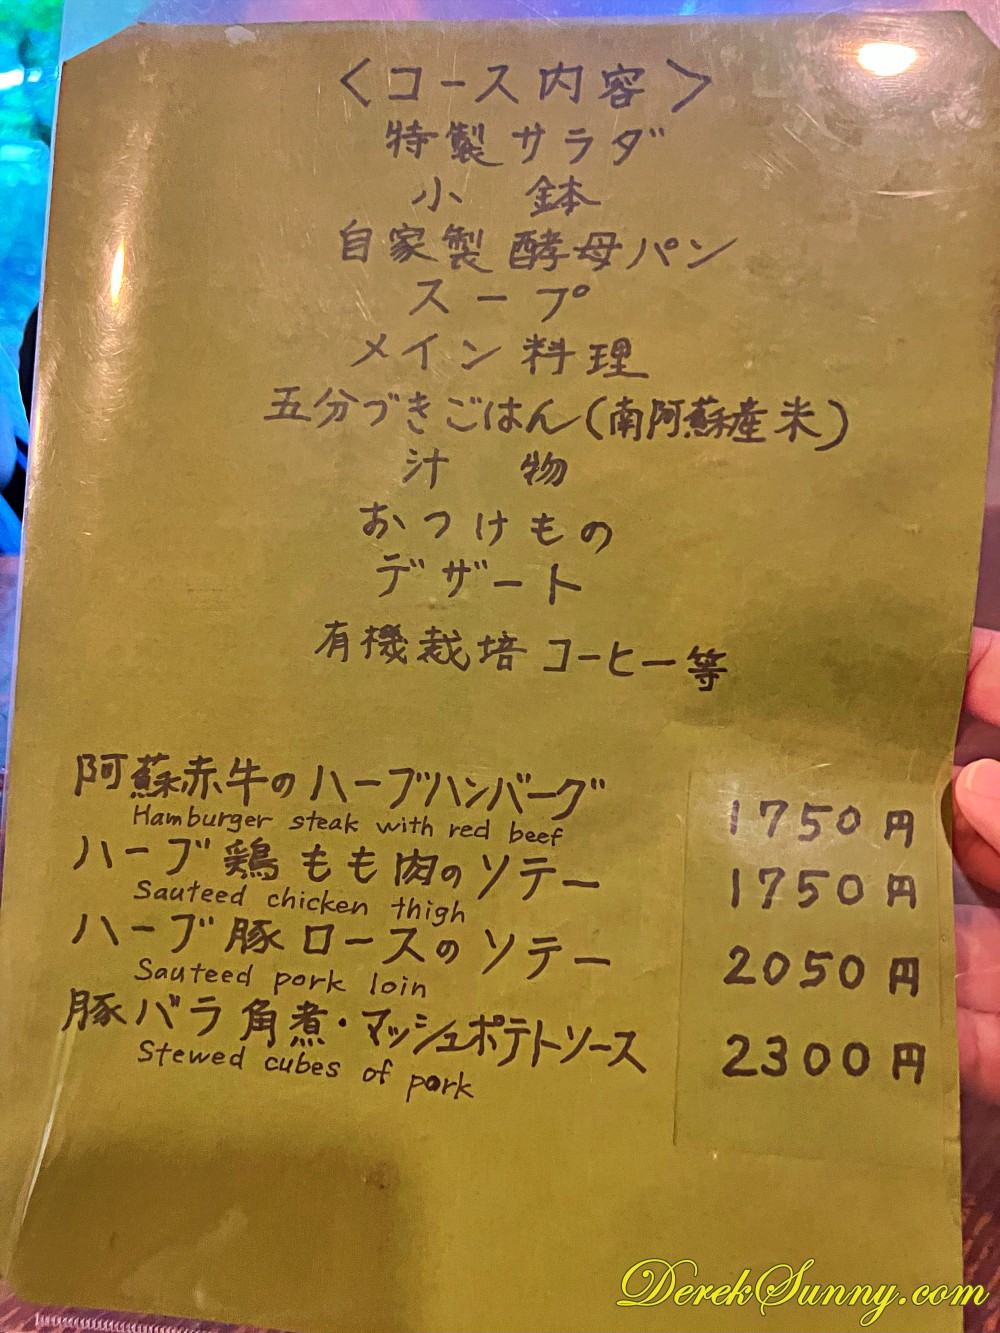 〈コース内容〉
特製サラダ
小鉢
自家製酵母パン
スープ
メイン料理
五分づきごはん(南阿蘇産米)
汁物
おつけもの
デザート
有機栽培コーヒー等
阿蘇赤牛のハーブハンバーグ 1750円
Hamburger steak with red beef
ハーブ鶏もも肉のソテー 1750円
Sauteed chicken thigh
ハーブ豚ロースのソテー 2050円
Sauteed pork loin
豚バラ角煮・マッシュポテトソース 2300円
Stewed cubes of pork
DerekSunny.com